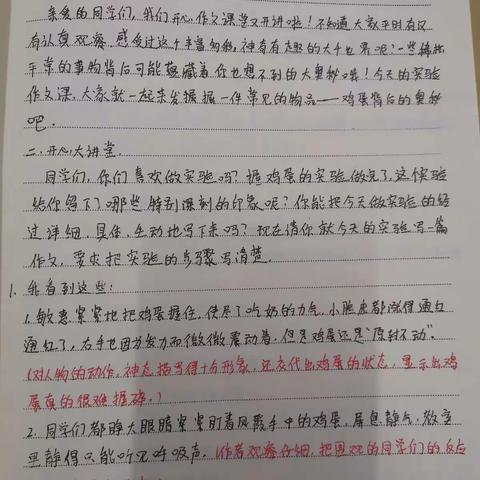 亲爱的同学们，我们开心作文课堂又开讲啦！不知道大家平时有没
有认真观察、感受过这个丰富多彩，神奇有趣的大千世界呢？一些稀松
平常的事物背后可能蕴藏着你也想不到的大奥秘哦！今天的实验
作文课，大家就一起来发掘掘一件常见的物品——鸡蛋背后的奥秘
吧。
二、开心大讲堂
同学们，你们喜欢做实验吗？握鸡蛋的实验做完了，这个实验
给你留下了哪些特别深刻的印象呢？你能把今天做实验的经
过详细、具体、生动地写下来吗？现在请你就今天的实验写一篇
作文，要求把实验的步骤写清楚。
1. 我看到这些：
1. 敏惠紧紧地把鸡蛋握住，使尽了吃奶的力气，小脸庞都涨得通红
通红了，右手也因为发力而微微震动着，但是鸡蛋还是“原封不动”。
（对人物的动作，神态描写得十分形象，还交代出鸡蛋的状态，显示出鸡
蛋真的很难握碎。）
2. 同学们都睁大眼睛紧紧盯着风霞手中的鸡蛋，屏息静气，教室
里静得只能听见呼吸声。（作者观察仔细，把围观的同学们的反应